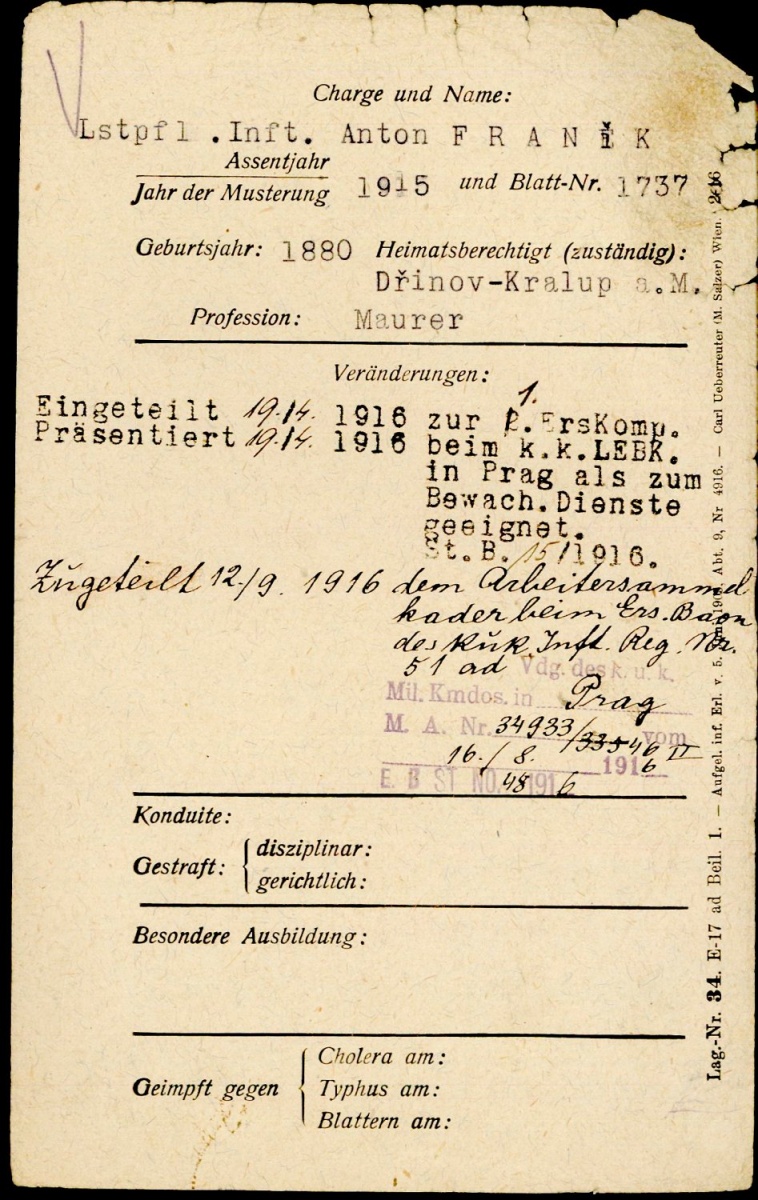 Charge und Name:
Lstpfl .Inft. Anton F R A N Ě K
Assentjahr
Jahr der Musterung 1915 und Blatt-Nr. 1737
Geburtsjahr: 1880 Heimatsberechtigt (zuständig):
Dřinov-Kralup a.M.
Profession: Maurer
Veränderungen:
1.
Eingeteilt 19./4. 1916 zur 2.ErsKomp.
Präsentiert 19./4. 1916 beim k.k.LEBK.
in Prag als zum
Bewach.Dienste
geeignet.
St.B. 15/1916.
Zugeteilt 12/9. 1916 dem Arbeitersammel
kader beim Ers. Baon
des kuk Inft. Reg. Nr.
51 ad Vdg. des k. u. k.
Mil. Kmdos. in Prag
M. A. Nr. 34933/33546 II vom
16./8. 1916
E. B ST NO. 48 1916
Konduite:
Gestraft: disziplinar:
gerichtlich:
Besondere Ausbildung:
Geimpft gegen Cholera am:
Typhus am:
Blattern am:
Lag.-Nr. 34. E-17 ad Beil. 1. — Aufgel. inf. Erl. v. 5. Abt. 9, Nr 4916. — Carl Ueberreuter (M. Salzer) Wien.